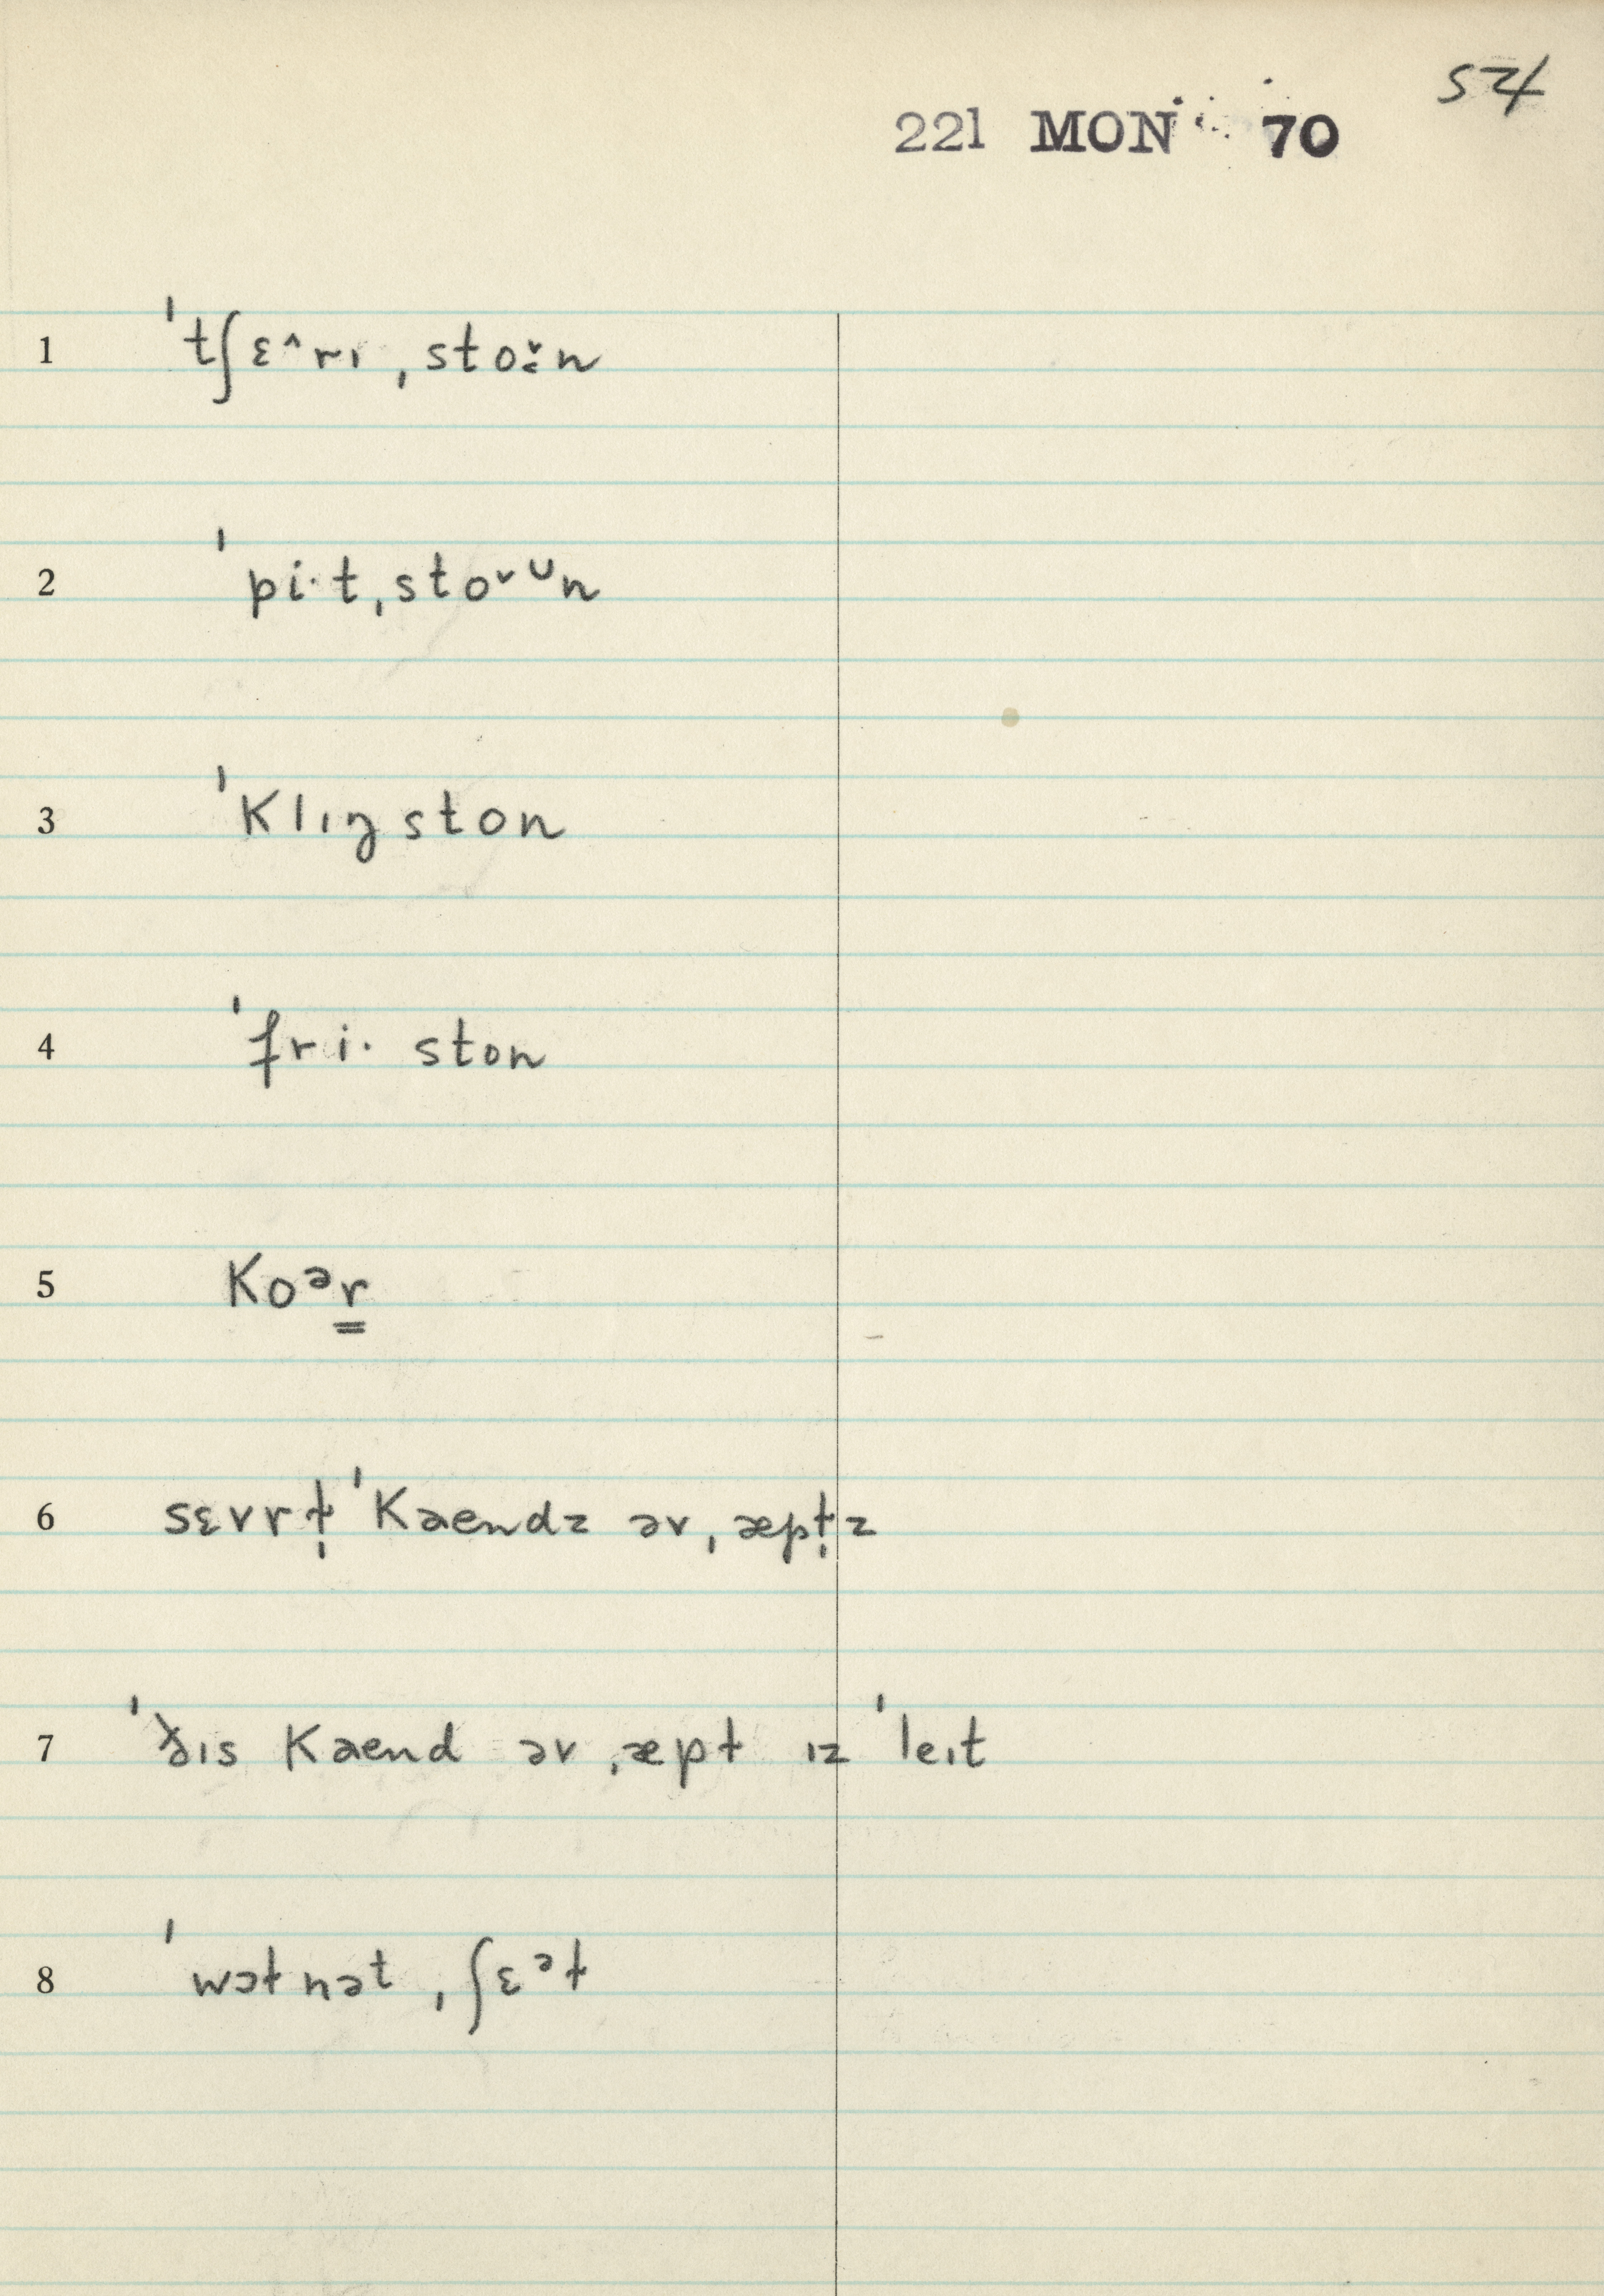 54
221 MON 70
1 ˈtʃɛ^rɪ ˌstoːˇn
2 ˈpi·t ˌstoˇᴜn
3 ˈklɪŋ ston
4 ˈfri· ston
5 koᵊr̳
6 sɛvrɫ̩ ˈkaendz əv ˌæpɫ̩z
7 ˈðɪs kaend əv ˌæpɫ ɪz ˈleɪt
8 ˈwɔɫnət ˌʃɛᵊɫ